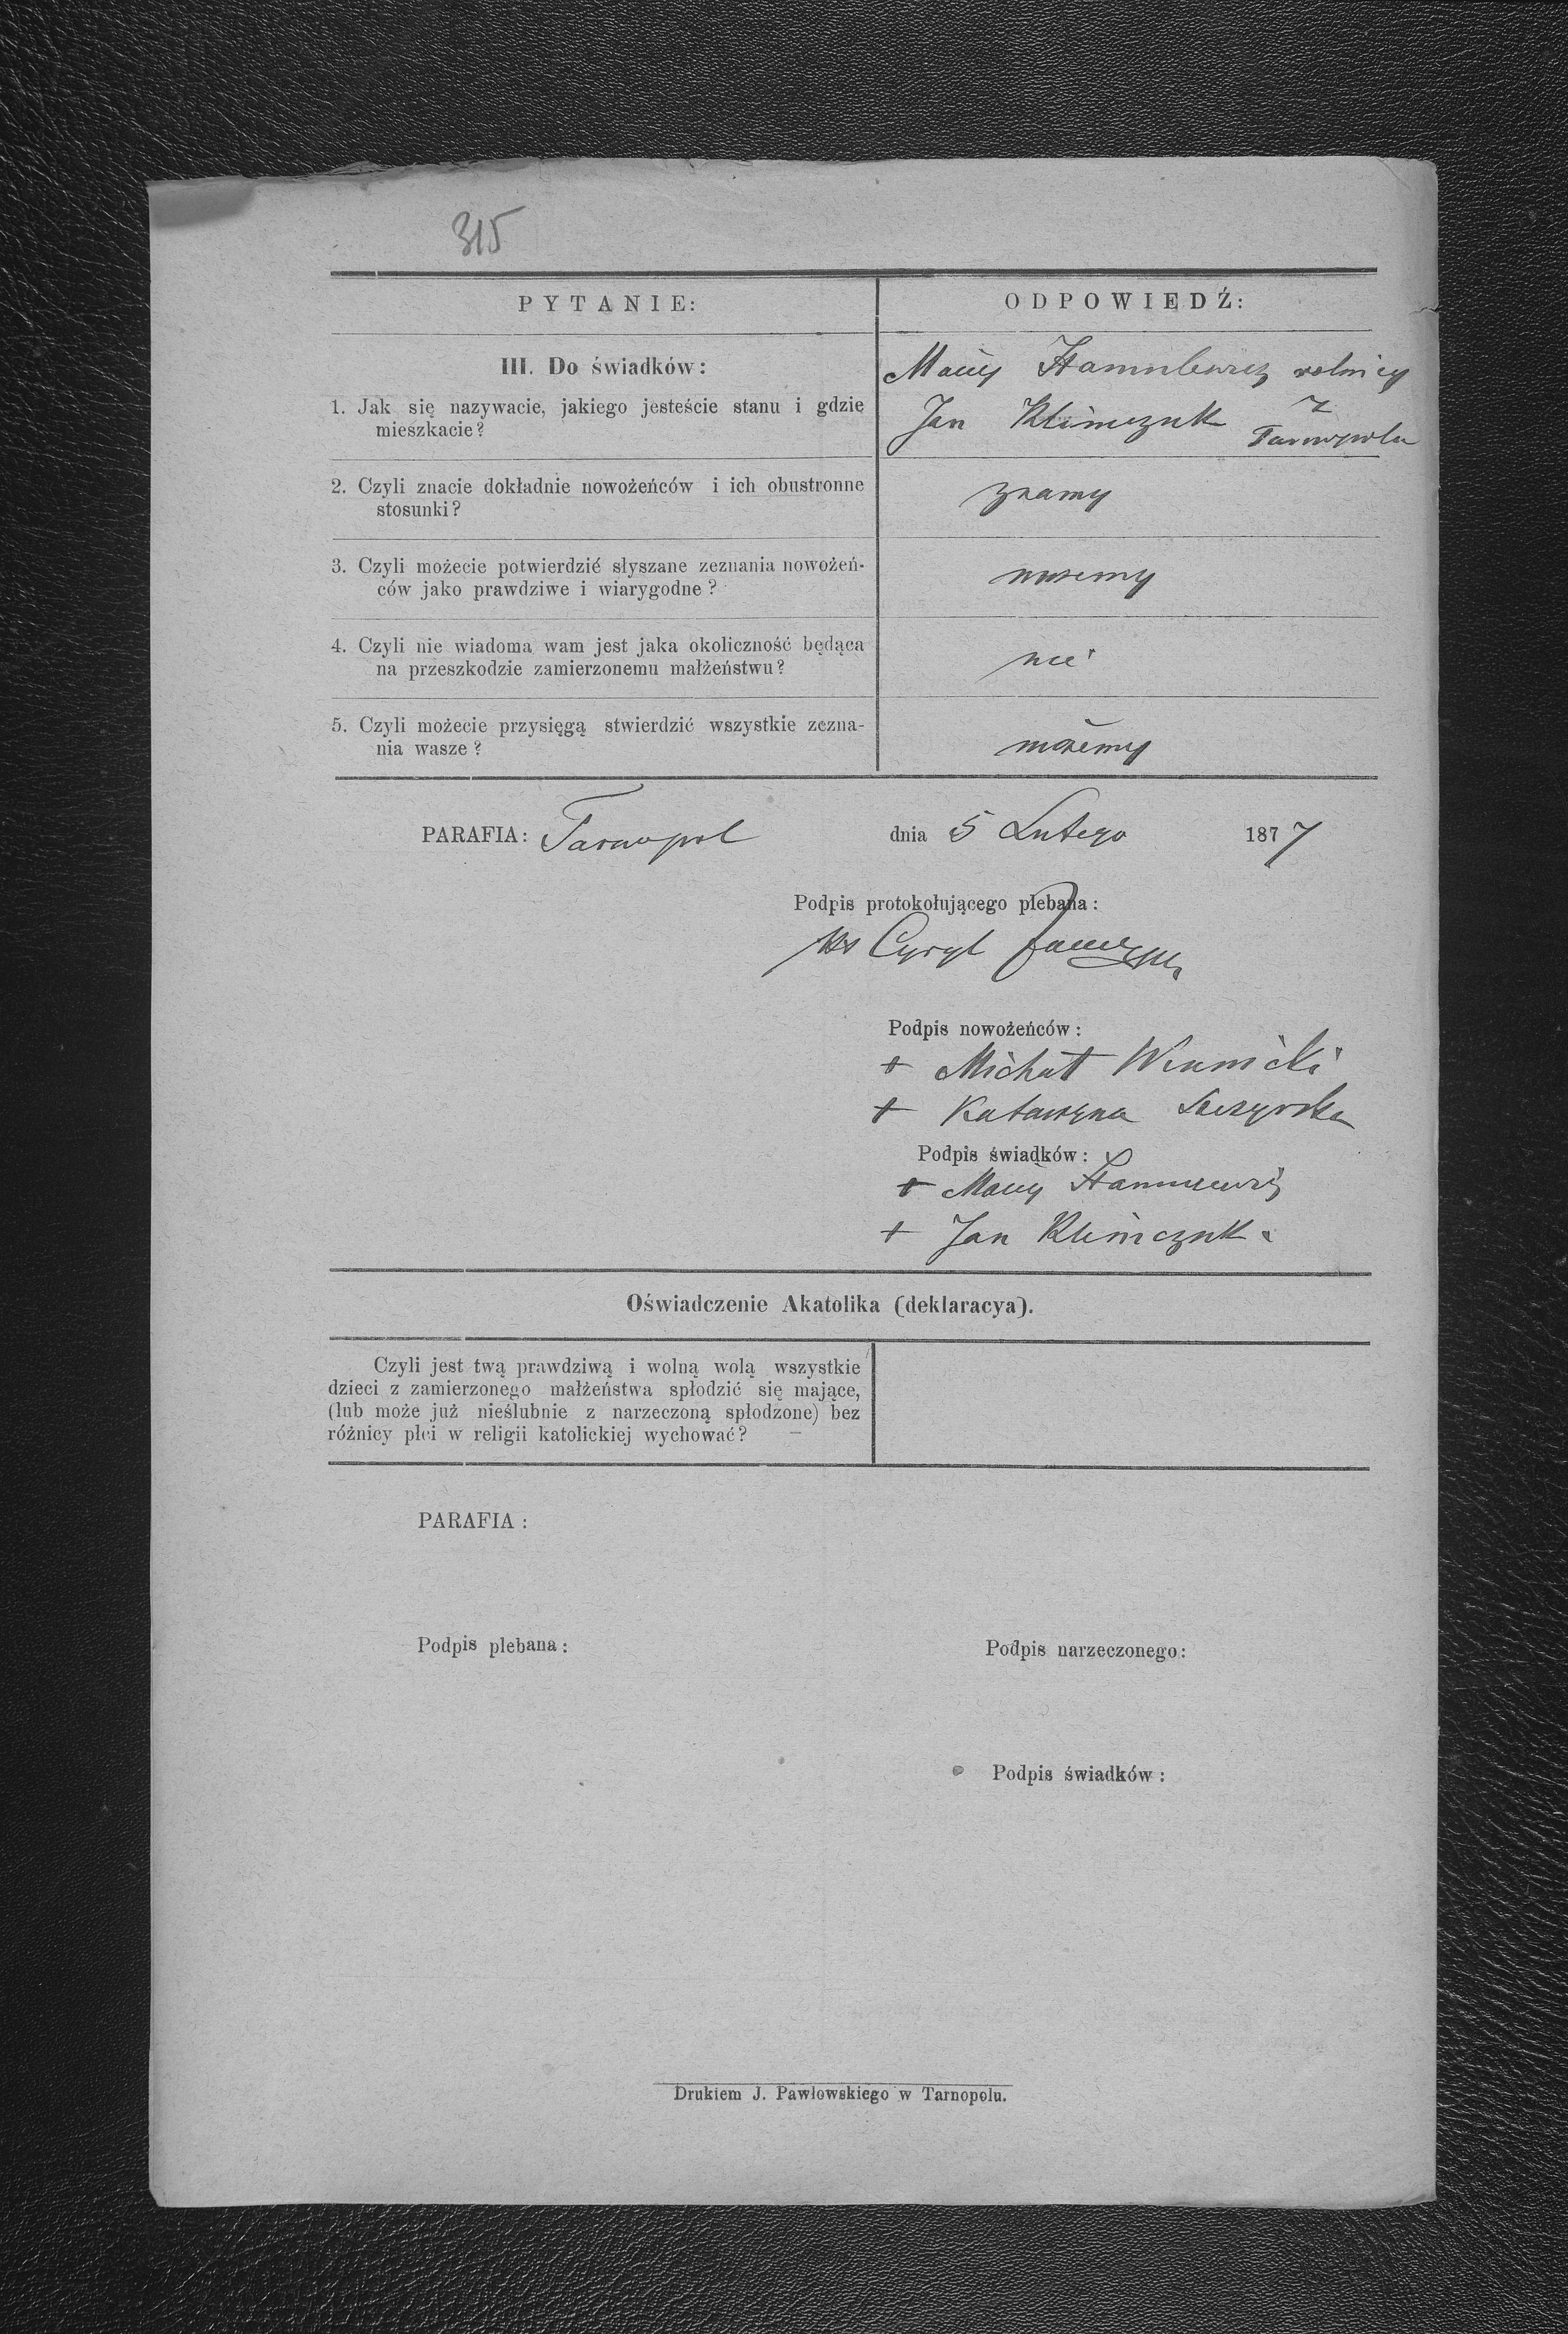 315
PYTANIE:
ODPOWIEDŹ:
III. Do świadków:
1. Jak się nazywacie, jakiego jesteście stanu i gdzie
mieszkacie?
Maciej rolnicy
Jan Klimczuk z
Tarnopola
2. Czyli znacie dokładnie nowożeńców i ich obustronne
stosunki?
znamy
3. Czyli możecie potwierdzić słyszane zeznania nowożeń-
ców jako prawdziwe i wiarygodne?
możemy
4. Czyli nie wiadoma wam jest jaka okoliczność będąca
na przeszkodzie zamierzonemu małżeństwu?
nie
5. Czyli możecie przysięgą stwierdzić wszystkie zezna-
nia wasze?
możemy
PARAFIA: Tarnopol dnia 5 Lutego 1877
Podpis protokołującego plebana:
Ks Cyryl
Podpis nowożeńców:
+ Michał Winnicki
+ Katarzyna
Podpis świadków:
+ Maciej
+ Jan Klimczuk
Oświadczenie Akatolika (deklaracya).
Czyli jest twą prawdziwą i wolną wolą wszystkie
dzieci z zamierzonego małżeństwa spłodzić się mające,
(lub może już nieślubnie z narzeczoną spłodzone) bez
różnicy płci w religii katolickiej wychować?
PARAFIA:
Podpis plebana:
Podpis narzeczonego:
Podpis świadków:
Drukiem J. Pawłowskiego w Tarnopolu.